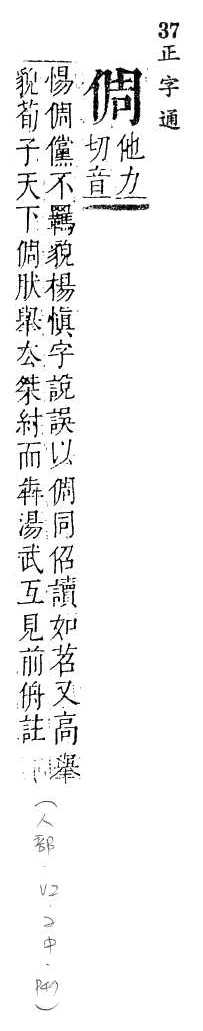 37正字通
倜
他力
切音
惕倜儻不羈貌楊愼字說誤以倜同佋讀如苕又高舉
貌荀子天下倜肰舉去桀紂而犇湯武互見前㑿註
(人部.V2.2中.P49)